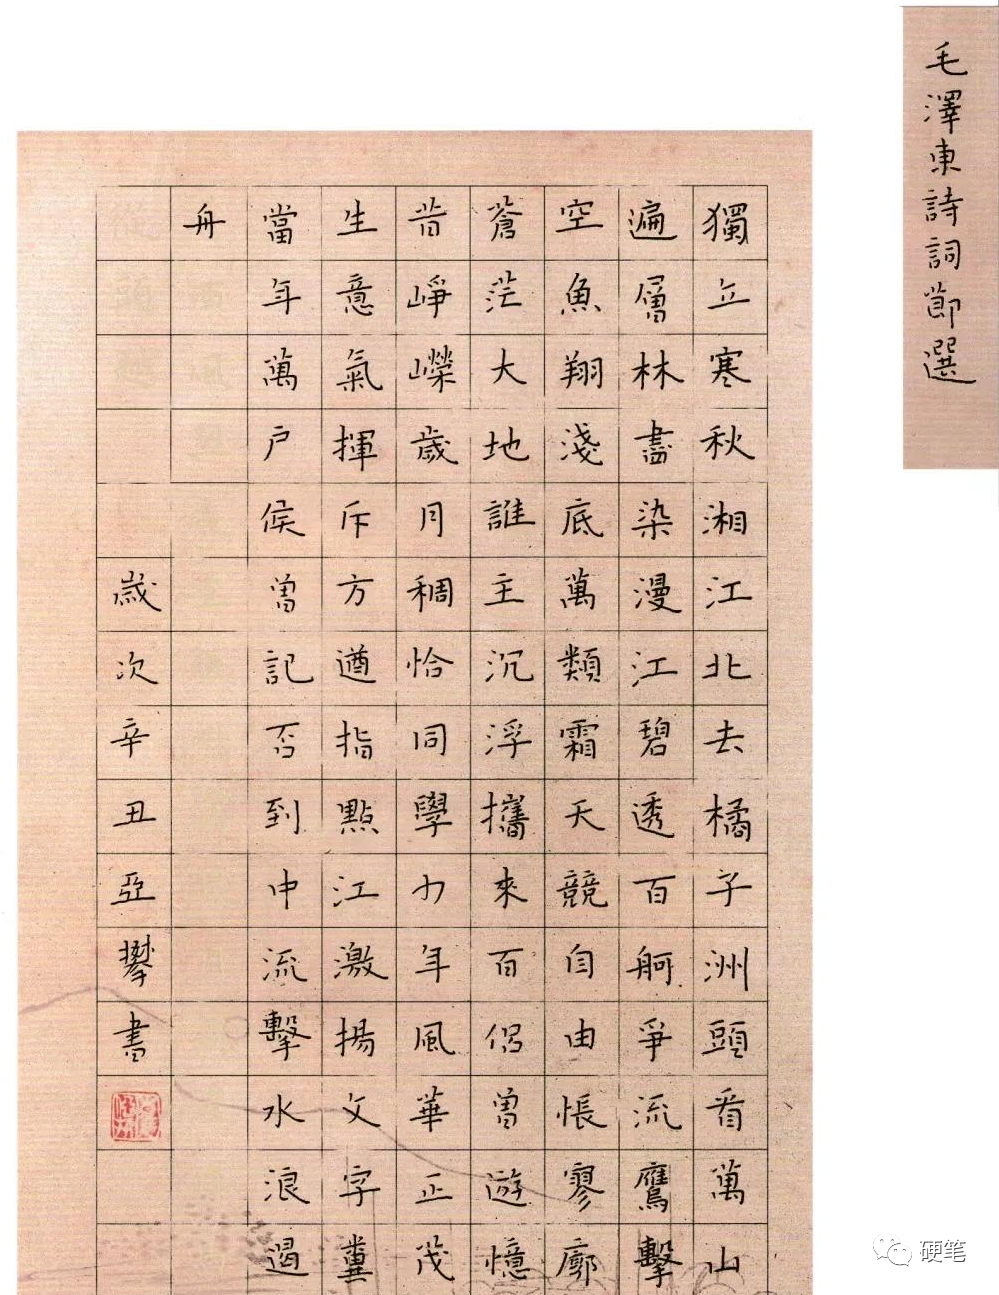 毛澤東詩詞節選
獨立寒秋湘江北去橘子洲頭看萬山
遍層林盡染漫江碧透百舸爭流鷹擊
空魚翔淺底萬類霜天競自由悵寥廓
蒼茫大地誰主沉浮攜來百侶曾遊憶
昔崢嶸歲月稠恰同學少年風華正茂
生意氣揮斥方遒指點江激揚文字糞
當年萬戶侯曾記否到中流擊水浪遏
舟
歲次辛丑亞攀書
硬笔